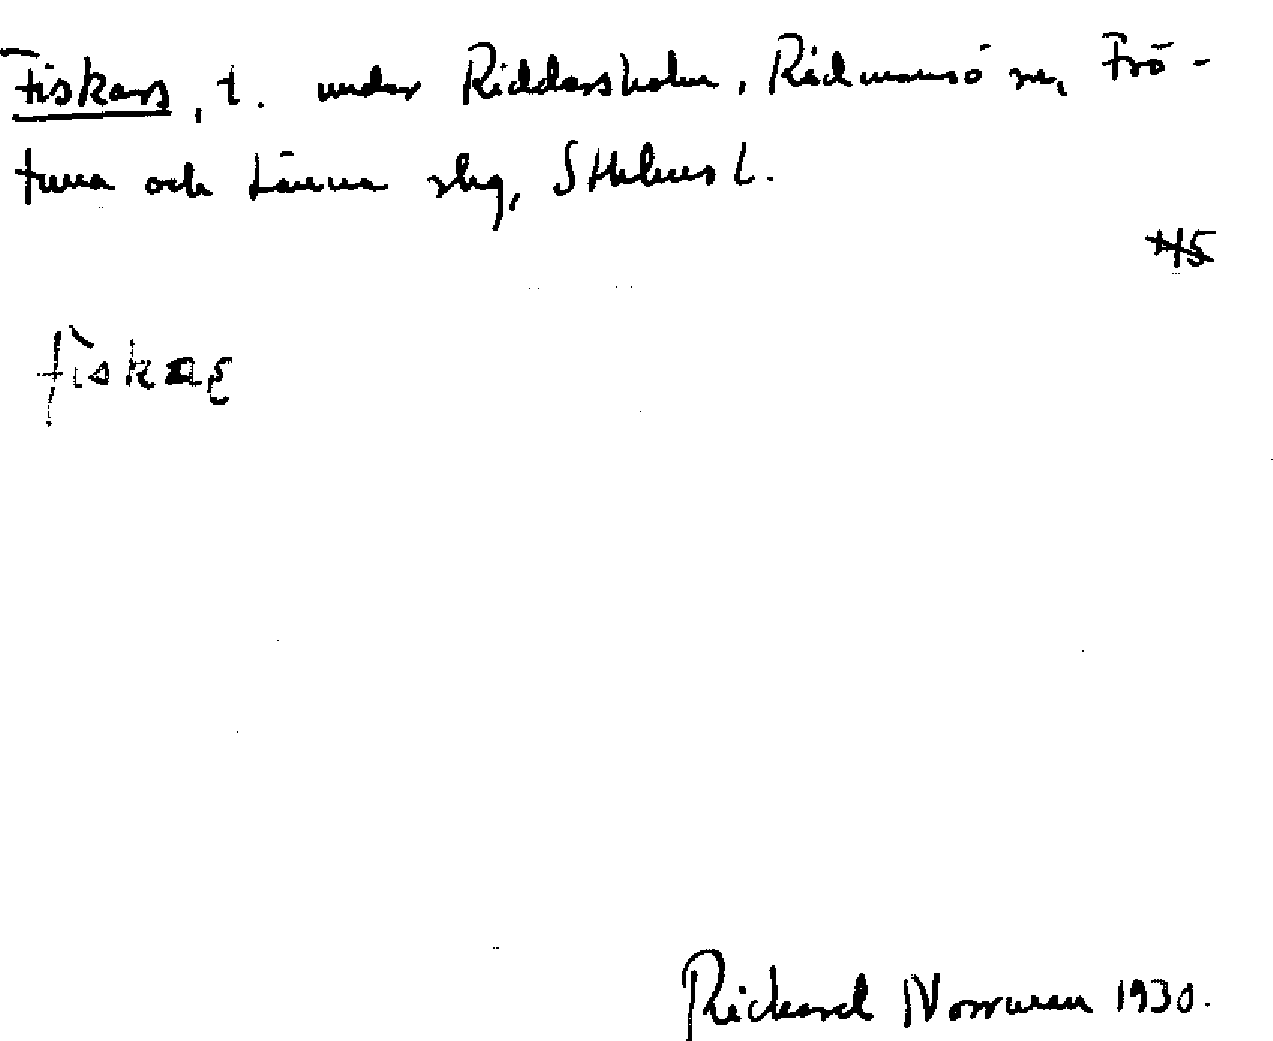 Fiskars, t. under Riddersholm, Rådmansö sn, Frö-
tuna och Länna slg, Sthlms l.
fìskaʂ
Rickard Norrman 1930.